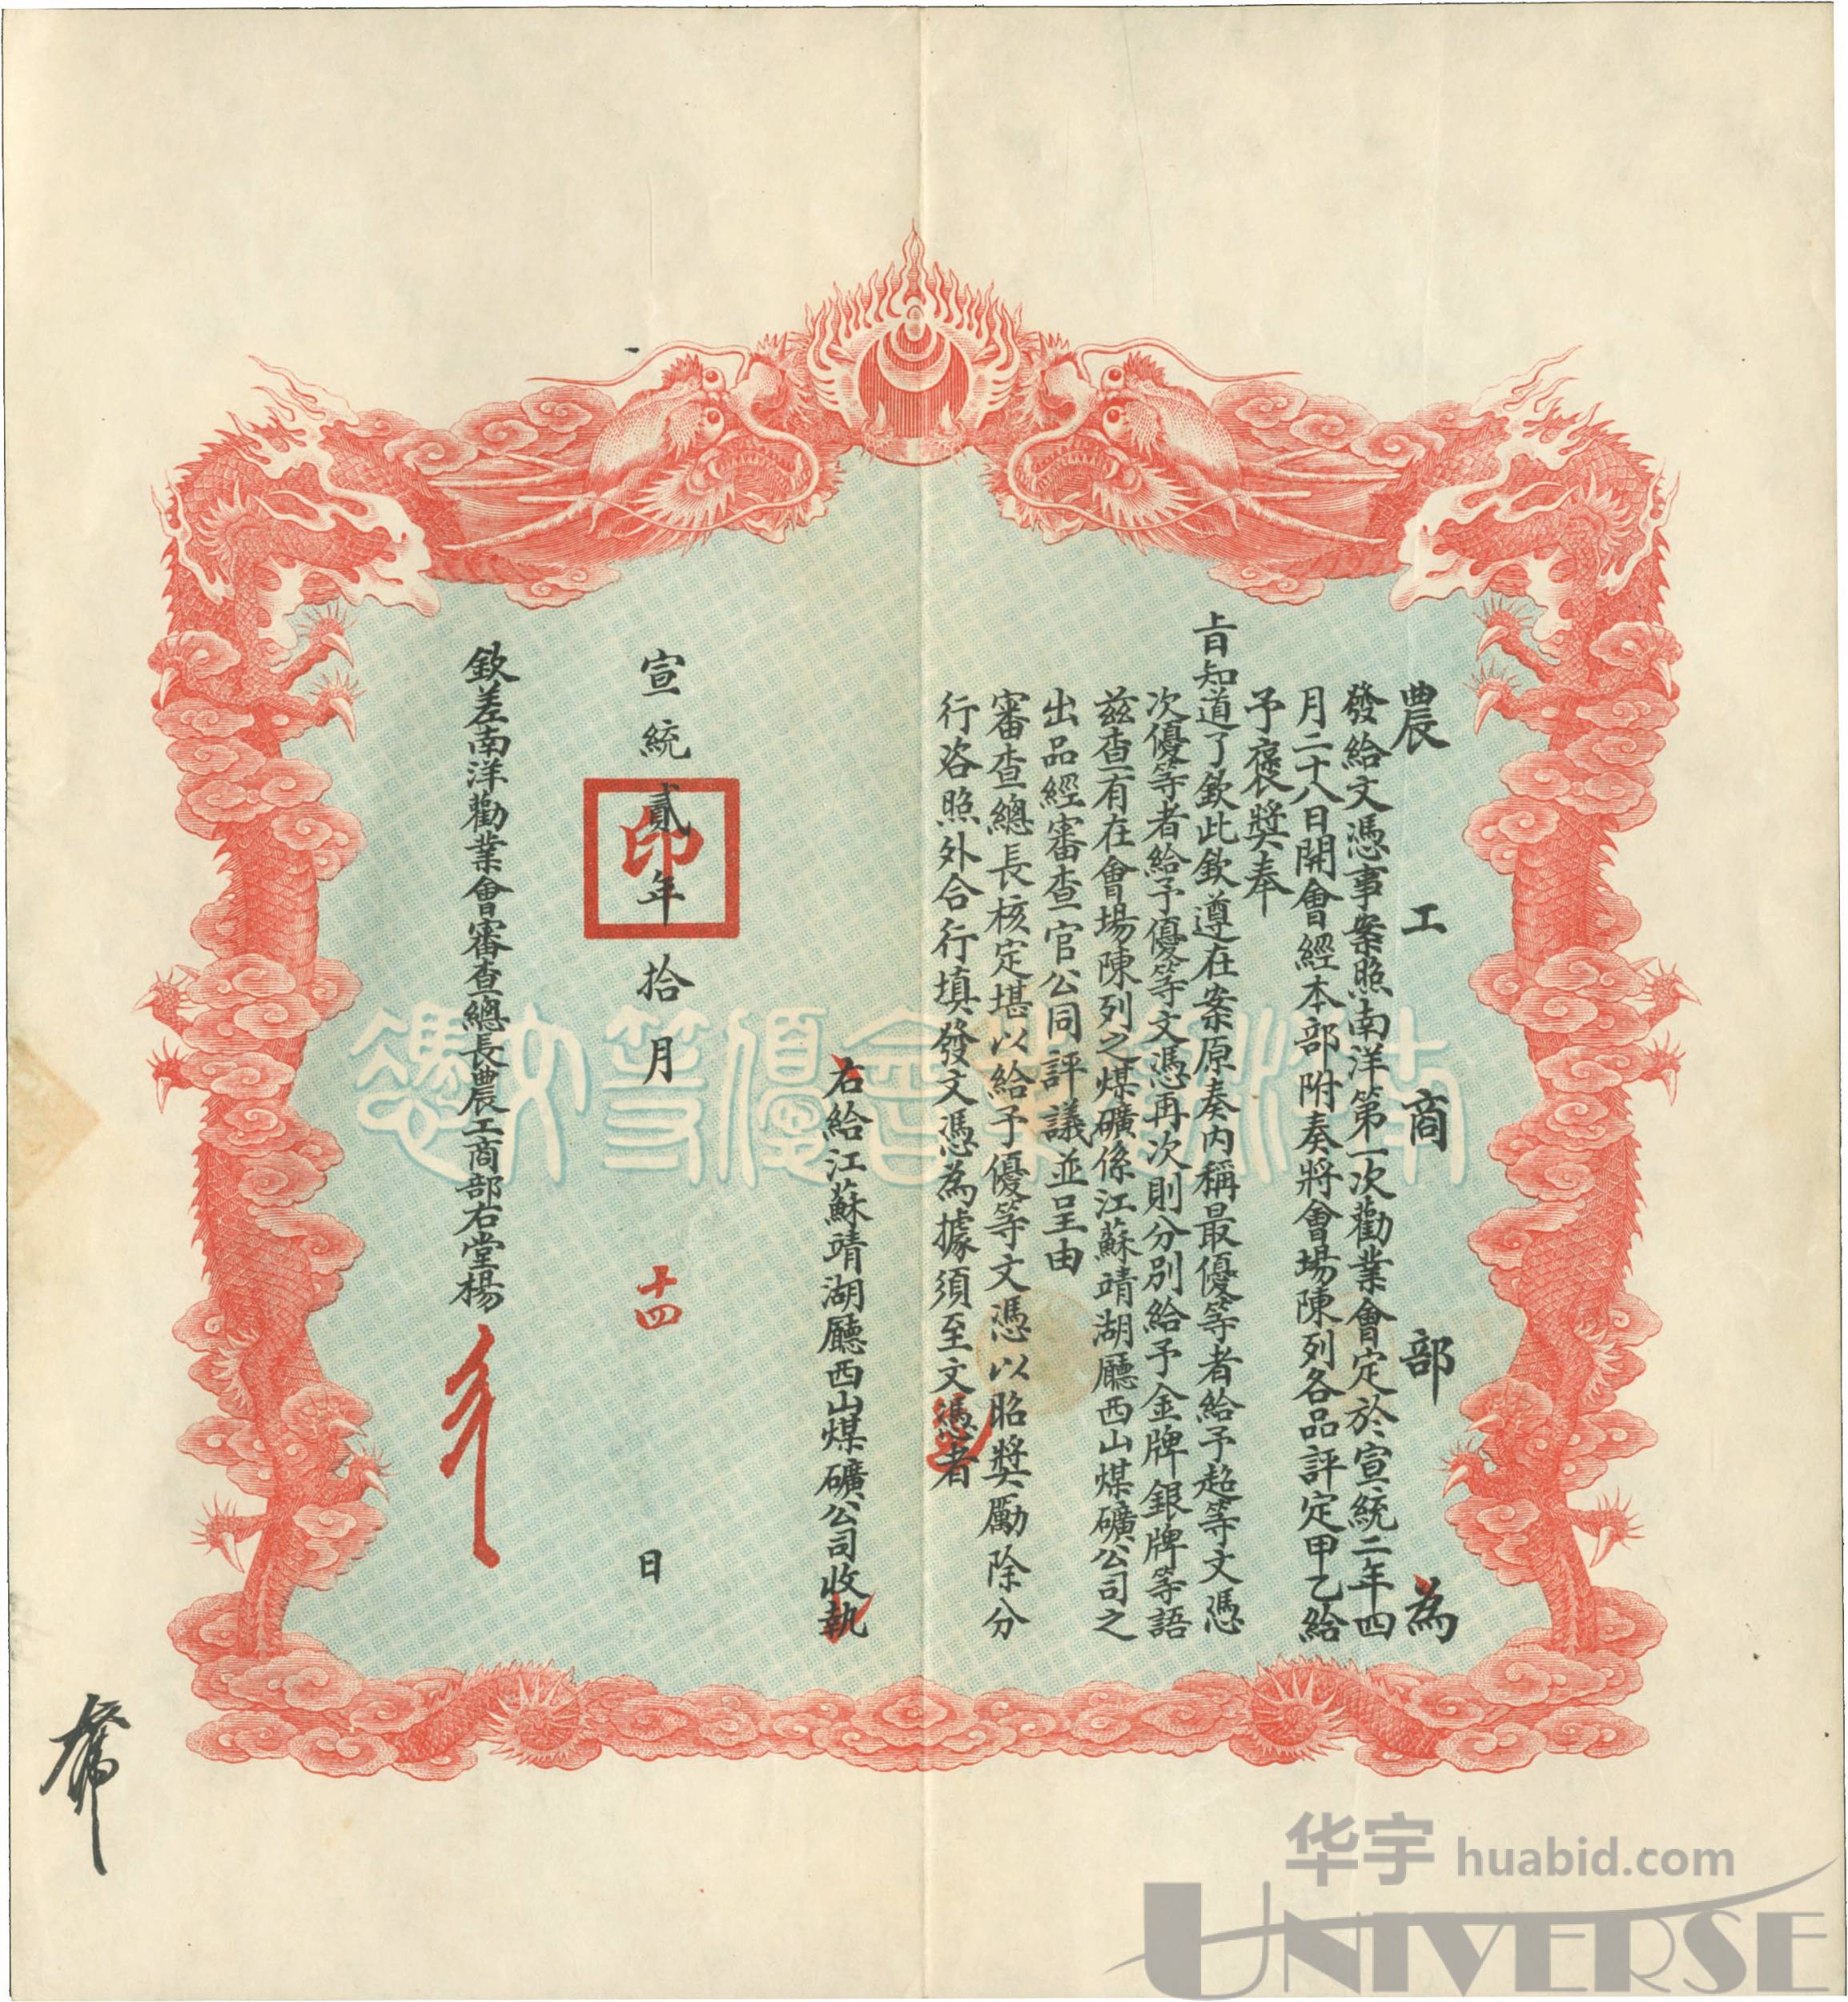 農工商部為
發給文憑事案照南洋第一次勸業會定於宣統二年四
月二十八日開會經本部附奏將會場陳列各品評定甲乙給
予褒獎奉
旨知道了欽此欽遵在案原奏內稱最優等者給予超等文憑
次優等者給予優等文憑再次則分別給予金牌銀牌等語
茲查有在會場陳列之煤礦係江蘇靖湖廳西山煤礦公司之
出品經審查官公同評議並呈由
審查總長核定堪以給予優等文憑以昭獎勵除分
行咨照外合行填發文憑為據須至文憑者
右給江蘇靖湖廳西山煤礦公司收執
宣統貳年拾月十四日
印
欽差南洋勸業會審查總長農工商部右堂楊
南洋勸業會優等文憑
华宇 huabid.com
UNIVERSE